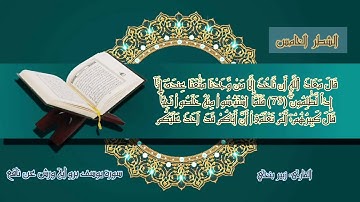 الشطر الخامس
قَالَ مَعَاذَ اللَّهِ أَن نَّأْخُذَ إِلَّا مَن وَجَدْنَا مَتَاعَنَا عِندَهُ إِنَّا
إِذًا لَّظَالِمُونَ (٧٩) فَلَمَّا
قَالَ كَبِيرُهُمْ أَلَمْ تَعْلَمُوا أَنَّ أَبَاكُمْ قَدْ أَخَذَ عَلَيْكُم
سورة يوسف برواية ورش عن نافع
القارئ: